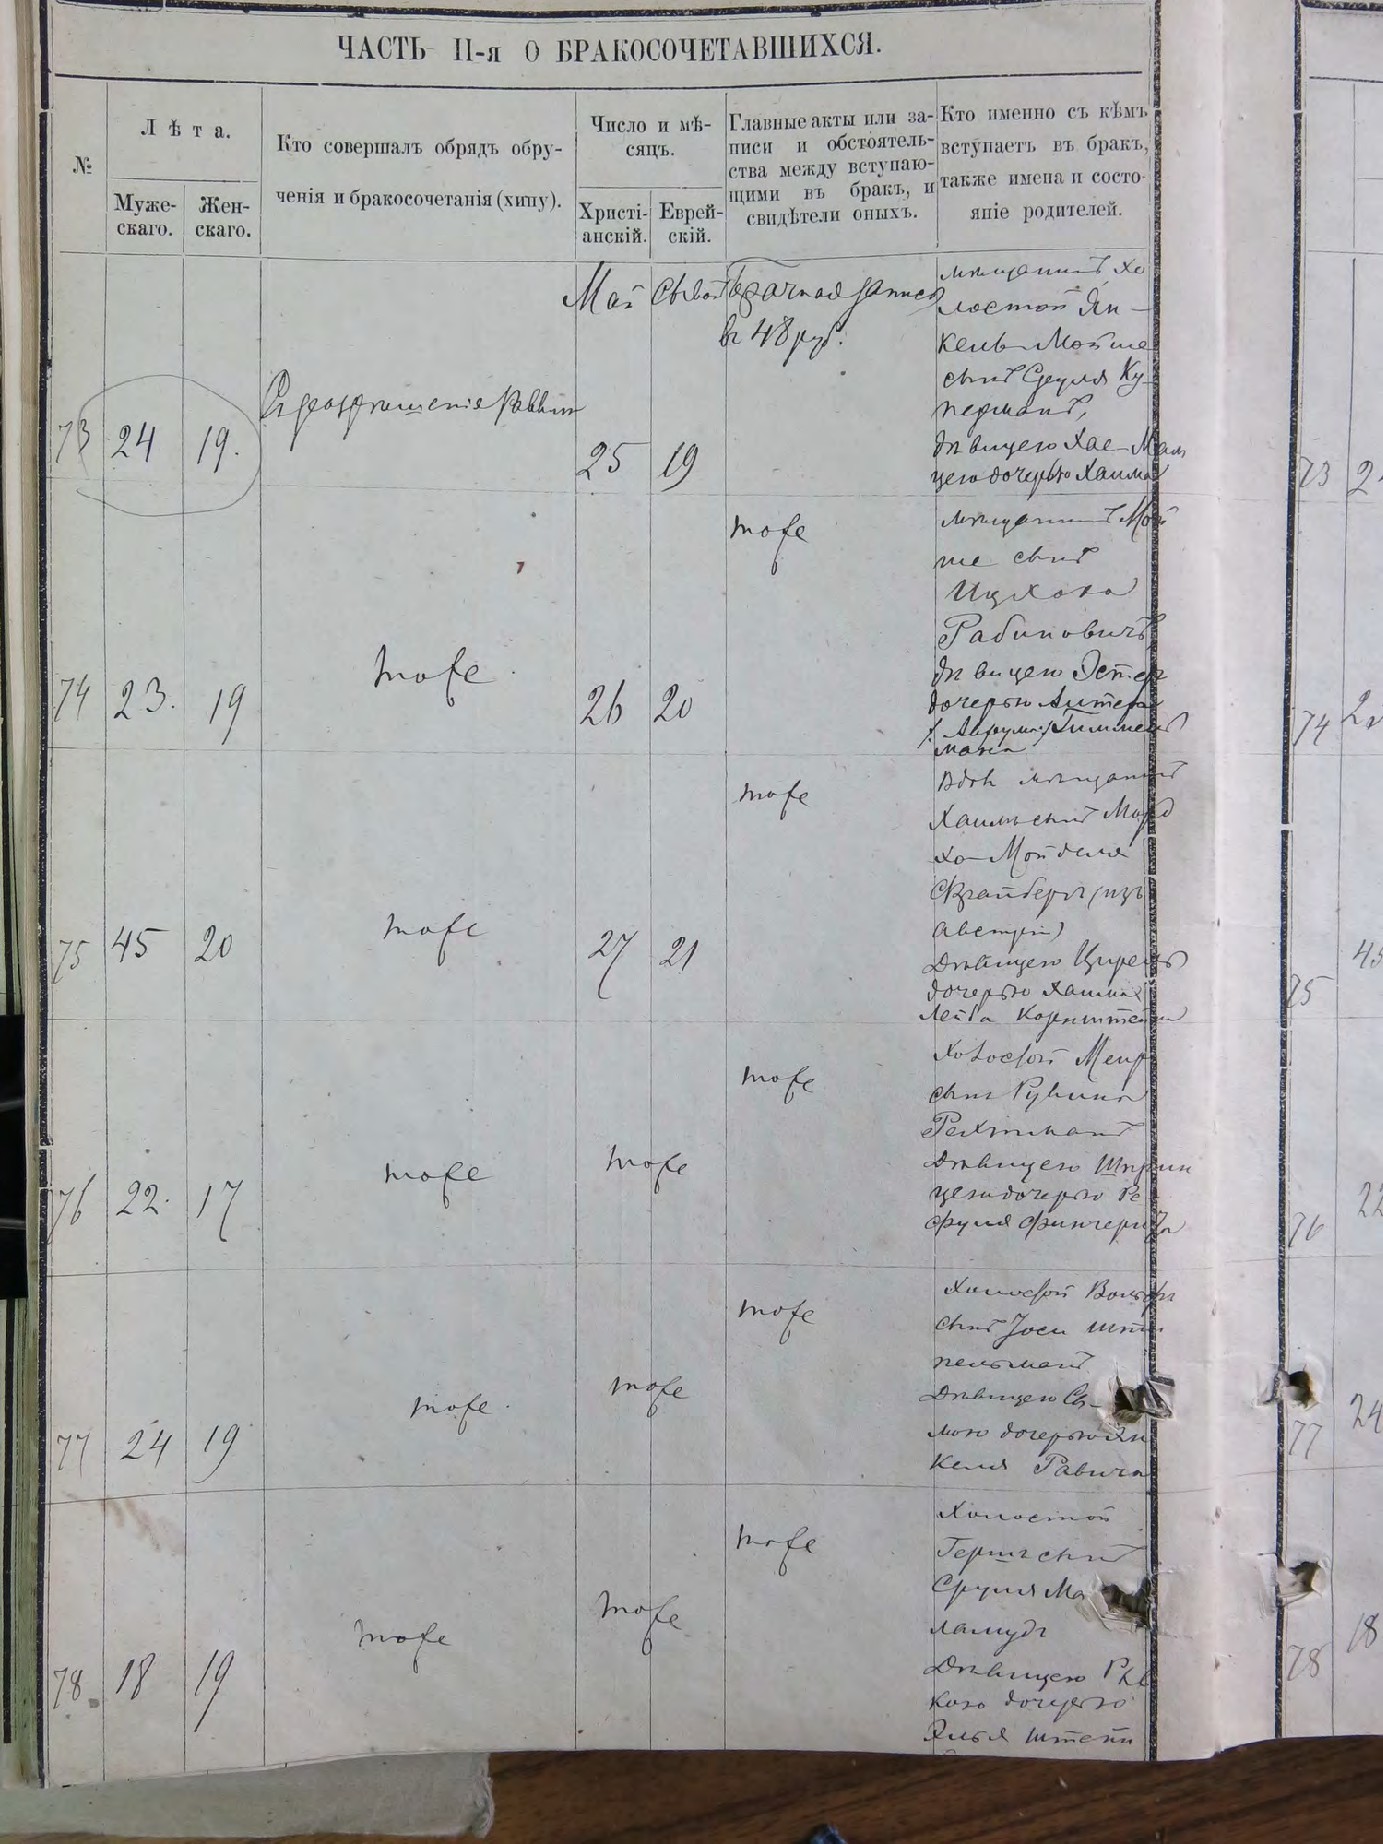 ЧАСТЬ II-я О БРАКОСОЧЕТАВШИХСЯ.
№
Лѣта.
Муже-
скаго.
Жен-
скаго.
Кто совершалъ обрядъ обру-
ченія и бракосочетанія (хипу).
Число и мѣ-
сяцъ.
Христі-
анскій.
Еврей-
скій.
Главные акты или за-
писи и обстоятель-
ства между вступаю-
щими въ бракъ, и
свидѣтели оныхъ.
Кто именно съ кѣмъ
вступаетъ въ бракъ,
также имена и состо-
яніе родителей.
73
24
19.
Съ разрешенія Раввин
Май
25
Сыван
19
Брачная запись
въ 48 руб.
мещанинъ Хо
лостой Ян-
кель Мойше
сынъ Сруля Ку-
перманъ,
дѣвицею Хае-Мал
цею дочерью Хаима
74
23.
19
тоже
26
20
тоже
мещанинъ Мой
ше сынъ
Ицхока
Рабиновичъ
дѣвицею Эстер
дочерью
75
45
20
тоже
27
21
тоже
Вдов мещанинъ
Хаимъ сынъ Морд
хо-Мойделя
(изъ
Австріи)
Дѣвицею
дочерью Хаима
Лейба
76
22.
17
тоже
тоже
тоже
Холостой Меир
сынъ Рувина
Рехтманъ
Дѣвицею Шприн
цею дочерью Ре
фуля
77
24
19
тоже.
тоже
тоже
Холостой Вольфъ
сынъ Іоси
пельманъ
Дѣвицею
дочерью Ян
келя Равича
78
18
19
тоже
тоже
тоже
Холостой
Гершъ сынъ
Сруля Ма
ламудъ
Дѣвицею Рив
кою дочерью
Эльи Штейн
73
2
74
2
75
45
76
22
77
24
78
18